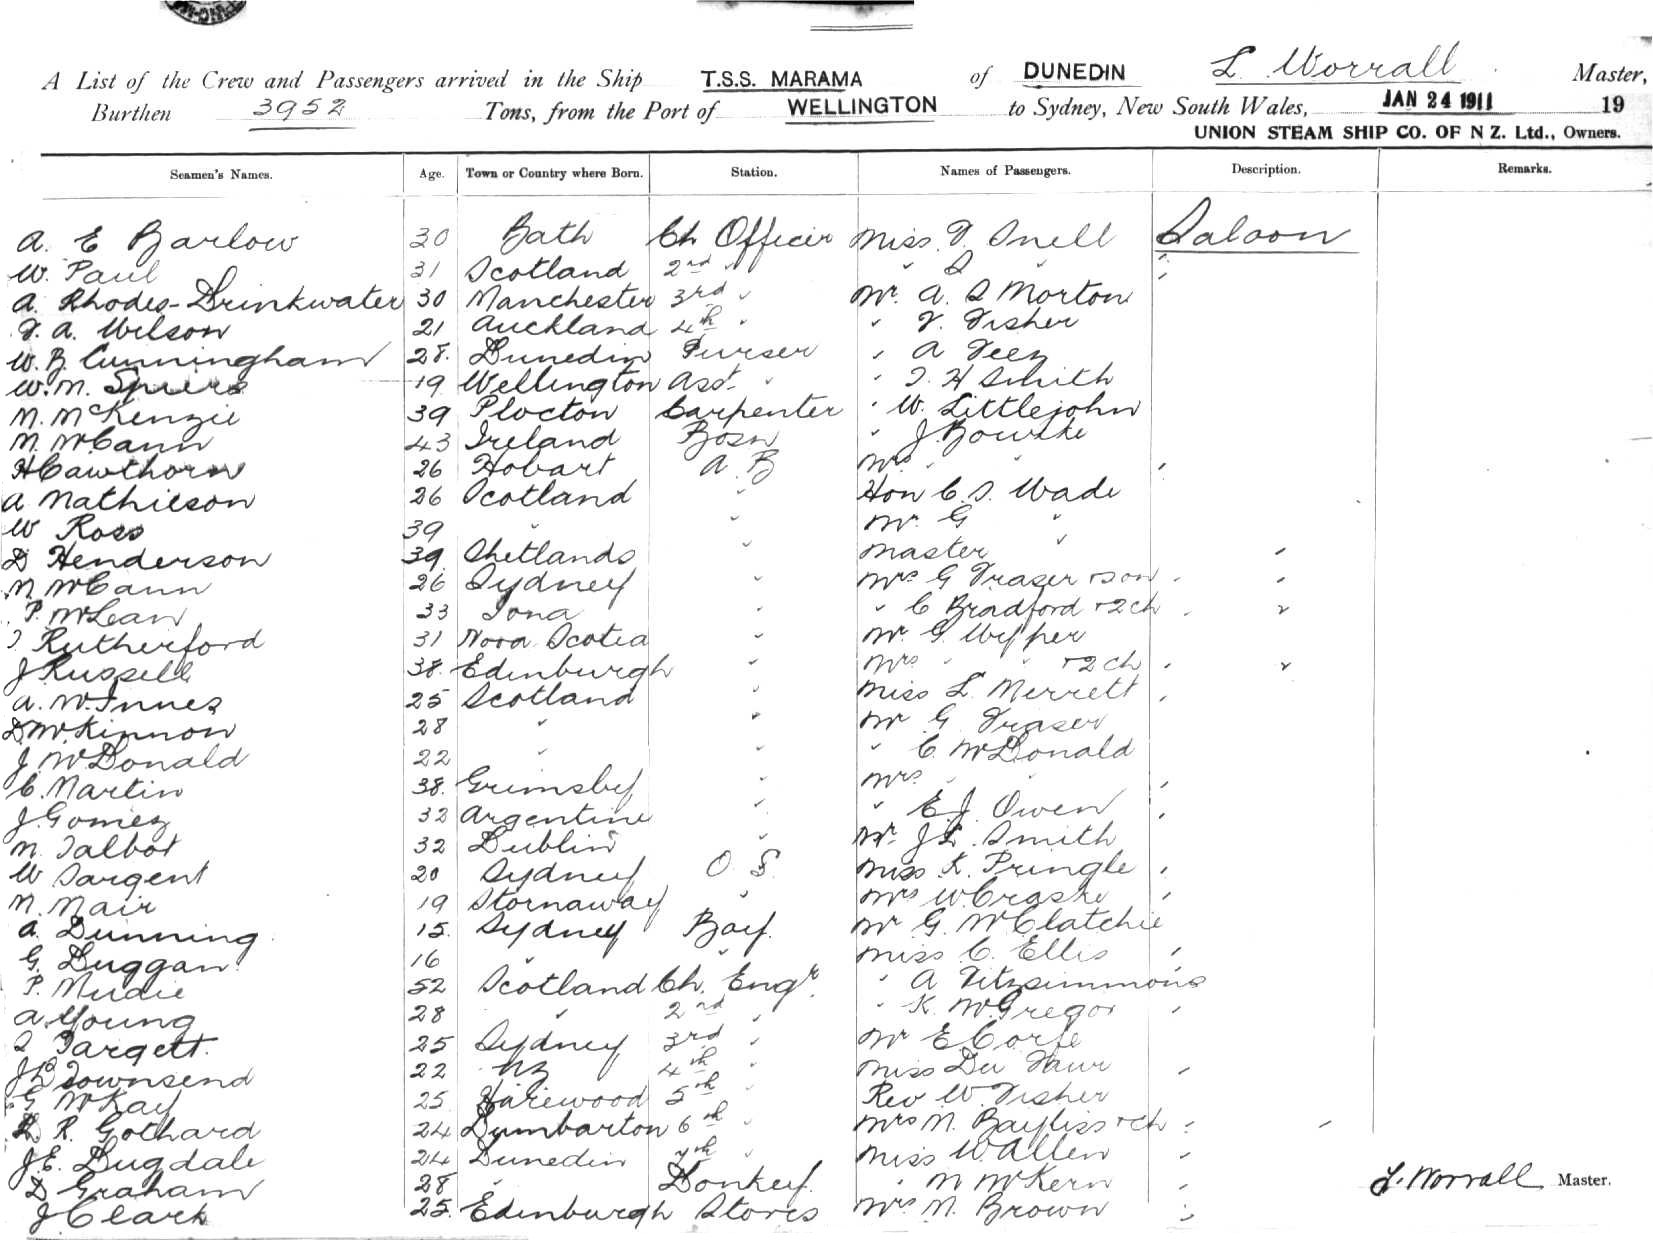 A List of the Crew and Passengers arrived in the Ship T.S.S. MARAMA of DUNEDIN L Worrall Master,
Burthen 3952 Tons, from the Port of WELLINGTON to Sydney, New South Wales, JAN 24 1911 19
UNION STEAM SHIP CO. OF N Z. Ltd., Owners.
Seamen's Names. Age. Town or Country where Born. Station. Names of Passengers. Description. Remarks.
A. E Barlow 30 Bath Ch Officer Miss F. Snell Saloon
W. Paul 31 Scotland 2nd " " S "
A. Rhodes-Drinkwater 30 Manchester 3rd " Mr. A. S Morton
F. A. Wilson 21 Auckland 4th " " F. Fisher
W. B. Cunningham 28. Dunedin Purser " A
W. M. Spiers 19 Wellington Asst. " " T. H Smith
M. McKenzie 39 Plocton Carpenter " W. Littlejohn
M. McCann 43 Ireland Bosn " J.
H Cawthorn 26 Hobart A. B Mrs " "
A Mathieson 26 Scotland " Hon C. S. Wade
W Ross 39 " " Mr. G "
D Henderson 39 Shetlands " Master "
M. McCann 26 Sydney " Mrs G Fraser + son
P. McLean 33 Iona " " C Bradford + 2 ch
T Rutherford 31 Nova Scotia " Mr. G. Wypper
J Russell 38. Edinburgh " Mrs " " + 2 ch
A. McInnes 25 Scotland " Miss L. Merrett
D McKinnon 28 " " Mr G Fraser
J. McDonald 22 " " " C. McDonald
C. Martin 38. Grimsby " Mrs. " "
J. Gomez 32 Argentine " " E. J. Owen
M. Talbot 32 Dublin " Mr. J. L. Smith
W Sargent 20 Sydney O. S. Miss K. Pringle
M. Mair 19 Stornaway " Mrs W. Craske
A. Dunning 15. Sydney Boy. Mr G. McClatchie
G. Duggan 16 " " Miss C. Ellis
P. Mudie 52 Scotland Ch. Engr. " A Fitzsimmons
A. Young 28 " 2nd " " K. McGregor
S Targett. 25 Sydney 3rd " Mr E Corfe
Townsend 22 NZ 4th " Miss Du Faur
G McKay 25 Harewood 5th " Rev W. Fisher
R. Gothard 24 Dumbarton 6th " Mrs M. Bayliss + ch
J. E. Dugdale 24 Dunedin 7th " Miss W. Allen
D Graham 28 " Donkey. " M McKern L. Worrall Master.
J Clark 25. Edinburgh Stores Mrs M. Brown